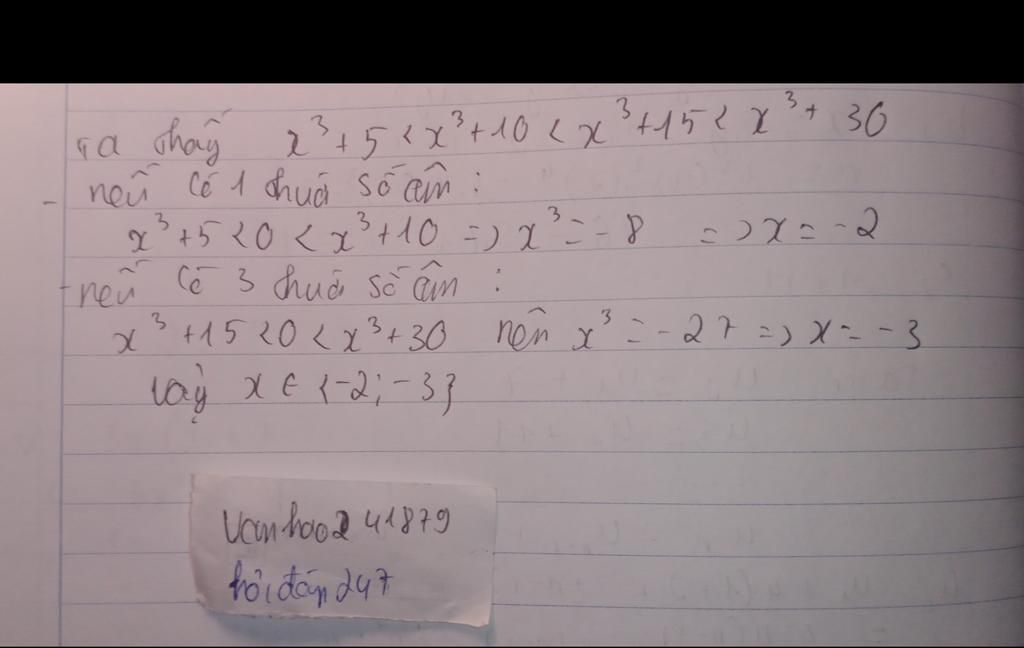 Ta thấy x³+5 < x³+10 < x³+15 < x³+ 30
- nếu có 1 thừa số âm :
x³+5 <0 < x³+10 => x³ = -8 => x = -2
- nếu có 3 thừa số âm :
x³ +15 <0 < x³+30 nên x³ = -27 => x = -3
vậy x ∈ {-2; -3}
Vanhao241879
hỏi đáp 247